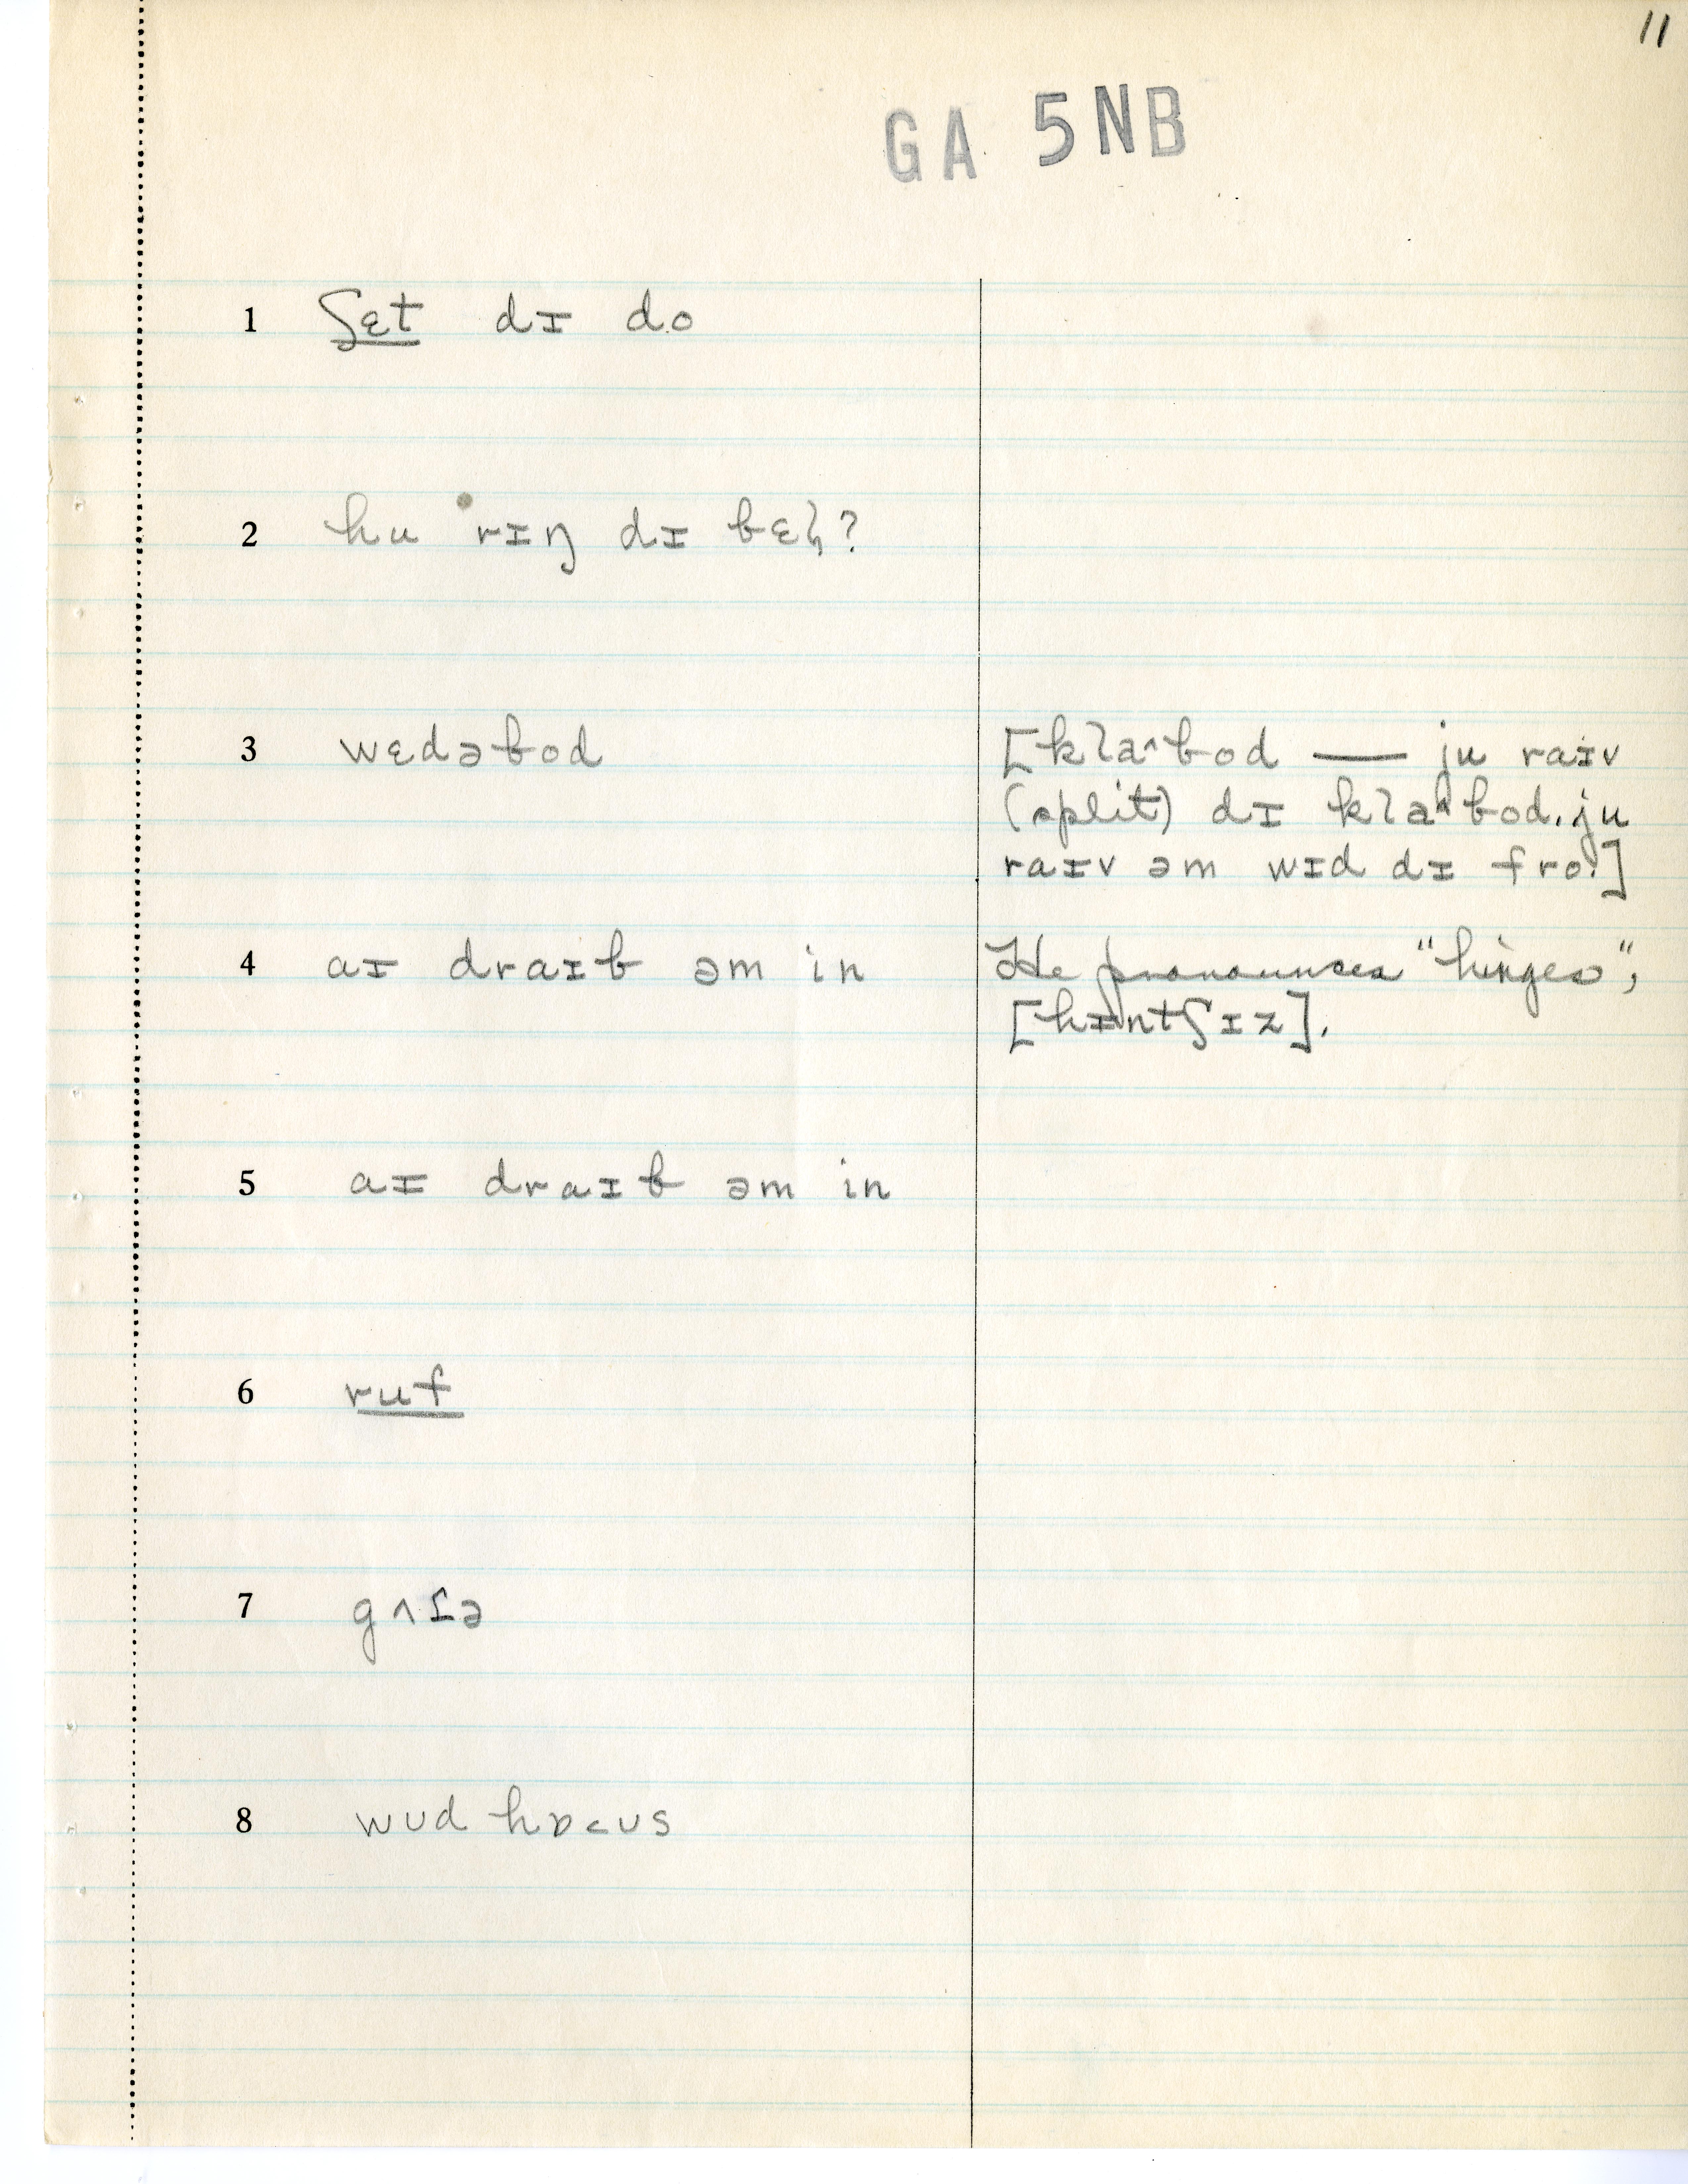 11
GA 5NB
1 ʃɛt dɪ do
2 hu rɪŋ dɪ bɛɫ?
3 wɛdəbod
[klaˆbod — ju raɪv
(split) dɪ klaˆbod. ju
raɪv əm wɪd dɪ fro.]
4 aɪ draɪb əm in
He pronounces "hinges",
[hɪntʃɪz].
5 aɪ draɪb əm in
6 ruf
7 gʌtə
8 wʊd hɒ˂ʊs